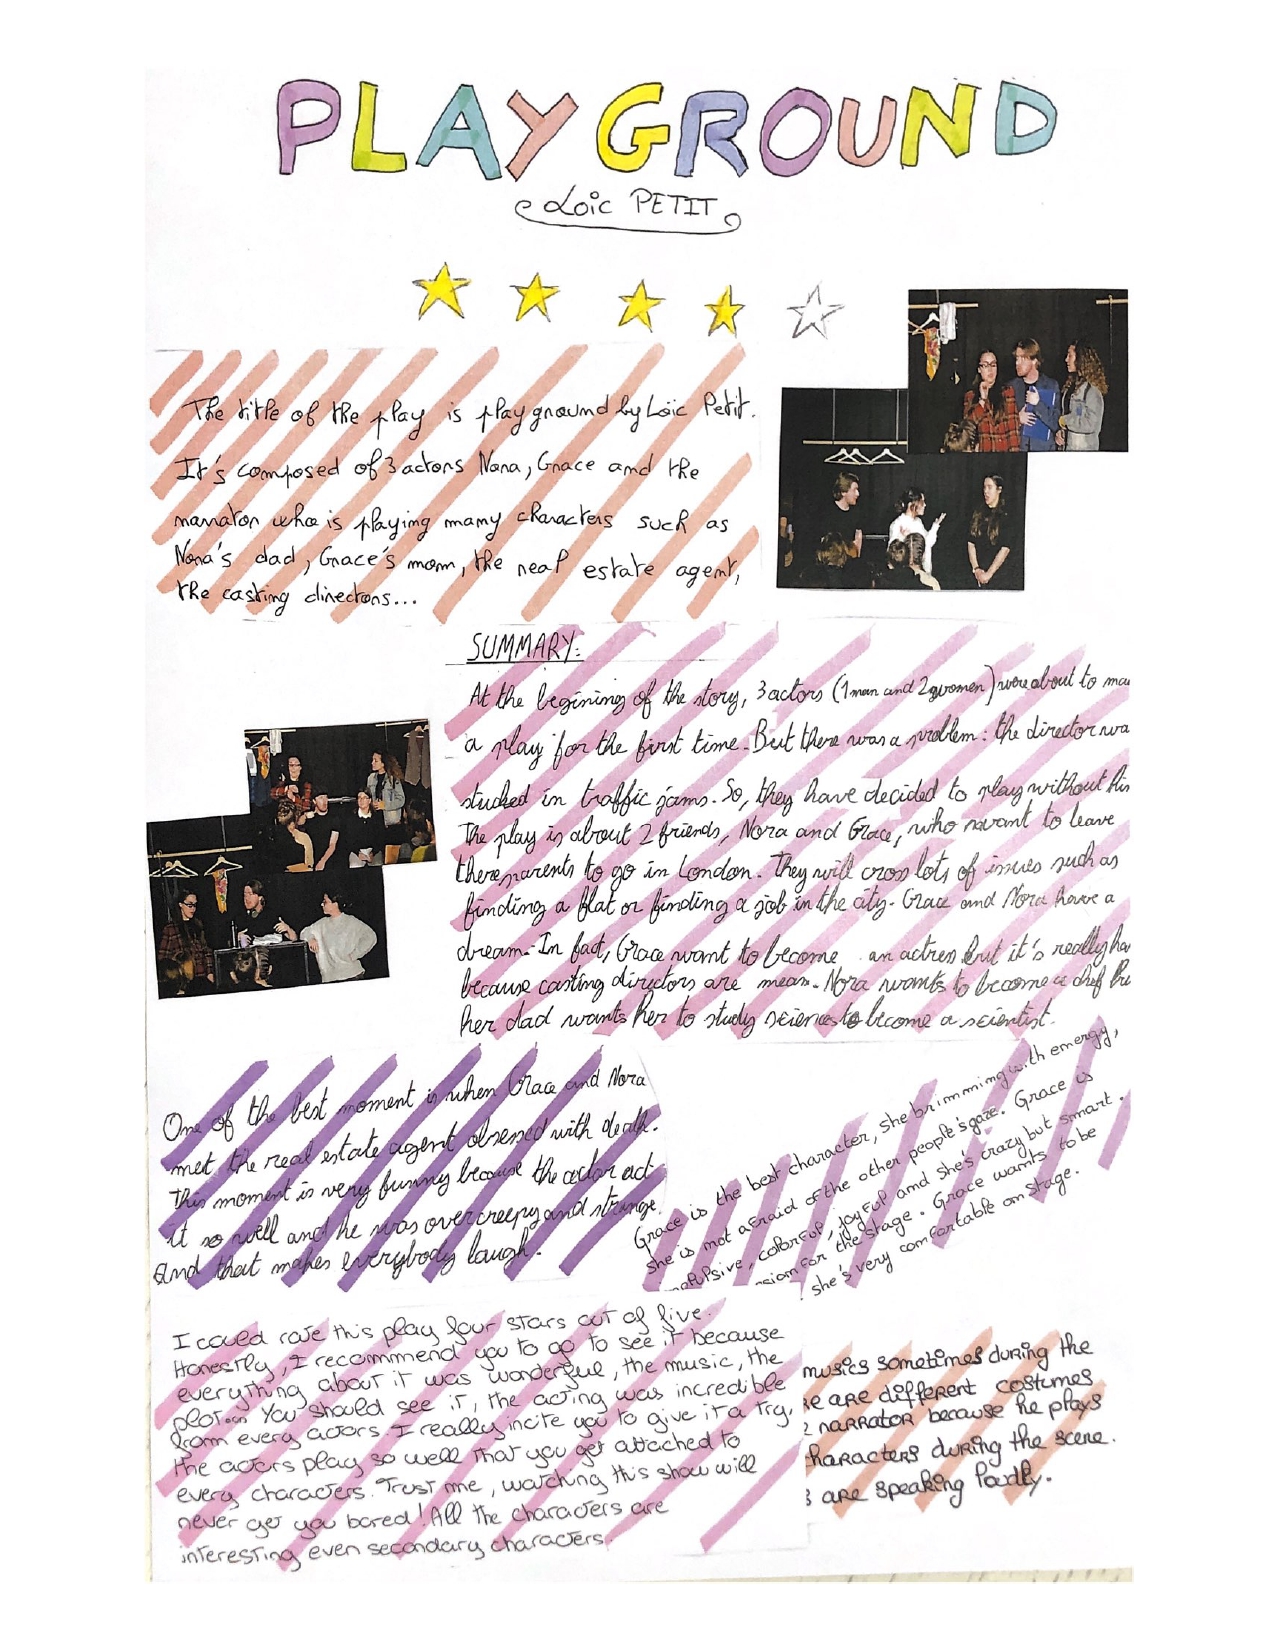 PLAYGROUND
Loïc PETIT
The title of the play is playground by Loïc Petit.
It's composed of 3 actors Nora, Grace and the
narrator who is playing many characters such as
Nora's dad, Grace's mom, the real estate agent,
the casting directors...
SUMMARY:
At the begining of the story, 3 actors (1 man and 2 women) were about to
a play for the first time. But there was a problem: the director
stucked in traffic jams. So, they have decided to play without
The play is about 2 friends, Nora and Grace, who want to leave
there parents to go in London. They will cross lots of issues such as
finding a flat or finding a job in the city. Grace and Nora have a
dream. In fact, Grace want to become an actress but it's really
because casting directors are mean. Nora wants to become a chef
her dad wants her to study sciences to become a scientist.
One of the best moment is when Grace and Nora
met the real estate agent obsessed with death.
This moment is very funny because the actor act
it so well and he was over creepy and strange.
And that makes everybody laugh.
Grace is the best character, she brimming with energy,
she is not afraid of the other people's gaze. Grace is
colorful, joyful and she's crazy but smart.
for the stage. Grace wants to be
she's very comfortable on stage.
I could rate this play four stars out of five.
Honestly, I recommend you to go to see it because
everything about it was wonderful, the music, the
plot... You should see it, the acting was incredible
from every actors. I really incite you to give it a try,
the actors play so well that you get attached to
every characters. Trust me, watching this show will
never get you bored! All the characters are
interesting even secondary characters.
musics sometimes during the
are different costumes
narrator because he plays
characters during the scene.
are speaking loudly.